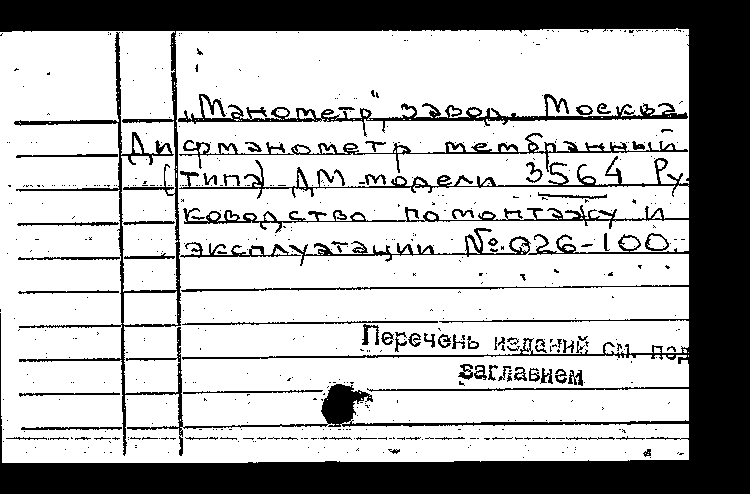 „Манометр", завод. Москва
Дифманометр мембранный
(типа) ДМ модели 3564 Ру-
ководство по монтажу и
эксплуатации №.026-100.
Перечень изданий см. под
заглавием